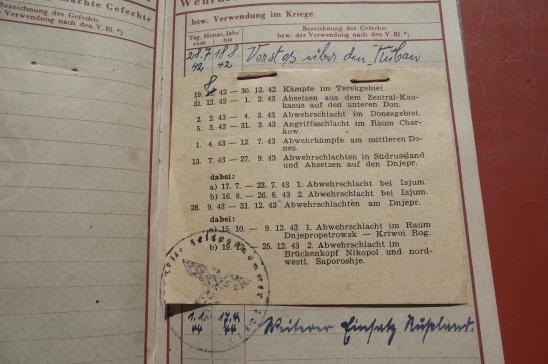 machte Gefechte
Bezeichnung des Gefechts
Verwendung nach den V. Bl.*)
bzw. Verwendung im Kriege
Tag, Monat, Jahr
vom bis
Bezeichnung des Gefechts
bzw. der Verwendung nach den V. Bl. *)
28.7. 18.8. Vorstoß über den Kuban
42. 42
19. 8 42 — 30. 12. 42 Kämpfe im Terekgebiet.
31. 12. 42 — 1. 2. 43 Absetzen aus dem Zentral-Kau-
kasus auf den unteren Don.
2. 2. 43 — 4. 3. 43 Abwehrschlacht im Donezgebiet.
5. 3. 43 — 31. 3. 43 Angriffsschlacht im Raum Char-
kow.
1. 4. 43 — 12. 7. 43 Abwehrkämpfe am mittleren Do-
nez.
13. 7. 43 — 27. 9. 43 Abwehrschlachten in Südrussland
und Absetzen auf den Dnjepr.
dabei:
a) 17. 7. — 23. 7. 43 1. Abwehrschlacht bei Isjum.
b) 16. 8. — 26. 8. 43 2. Abwehrschlacht bei Isjum.
28. 9. 43 — 31. 12. 43 Abwehrschlachten am Dnjepr.
dabei:
a) 15. 10. — 9. 12. 43 1. Abwehrschlacht im Raum
Dnjepropetrowsk — Kriwoi Rog.
b) 19. — 25. 12. 43 2. Abwehrschlacht im
Brückenkopf Nikopol und nord-
westl. Saporoshje.
1.1. 17.4. Weiterer Einsatz Rußland.
44 44